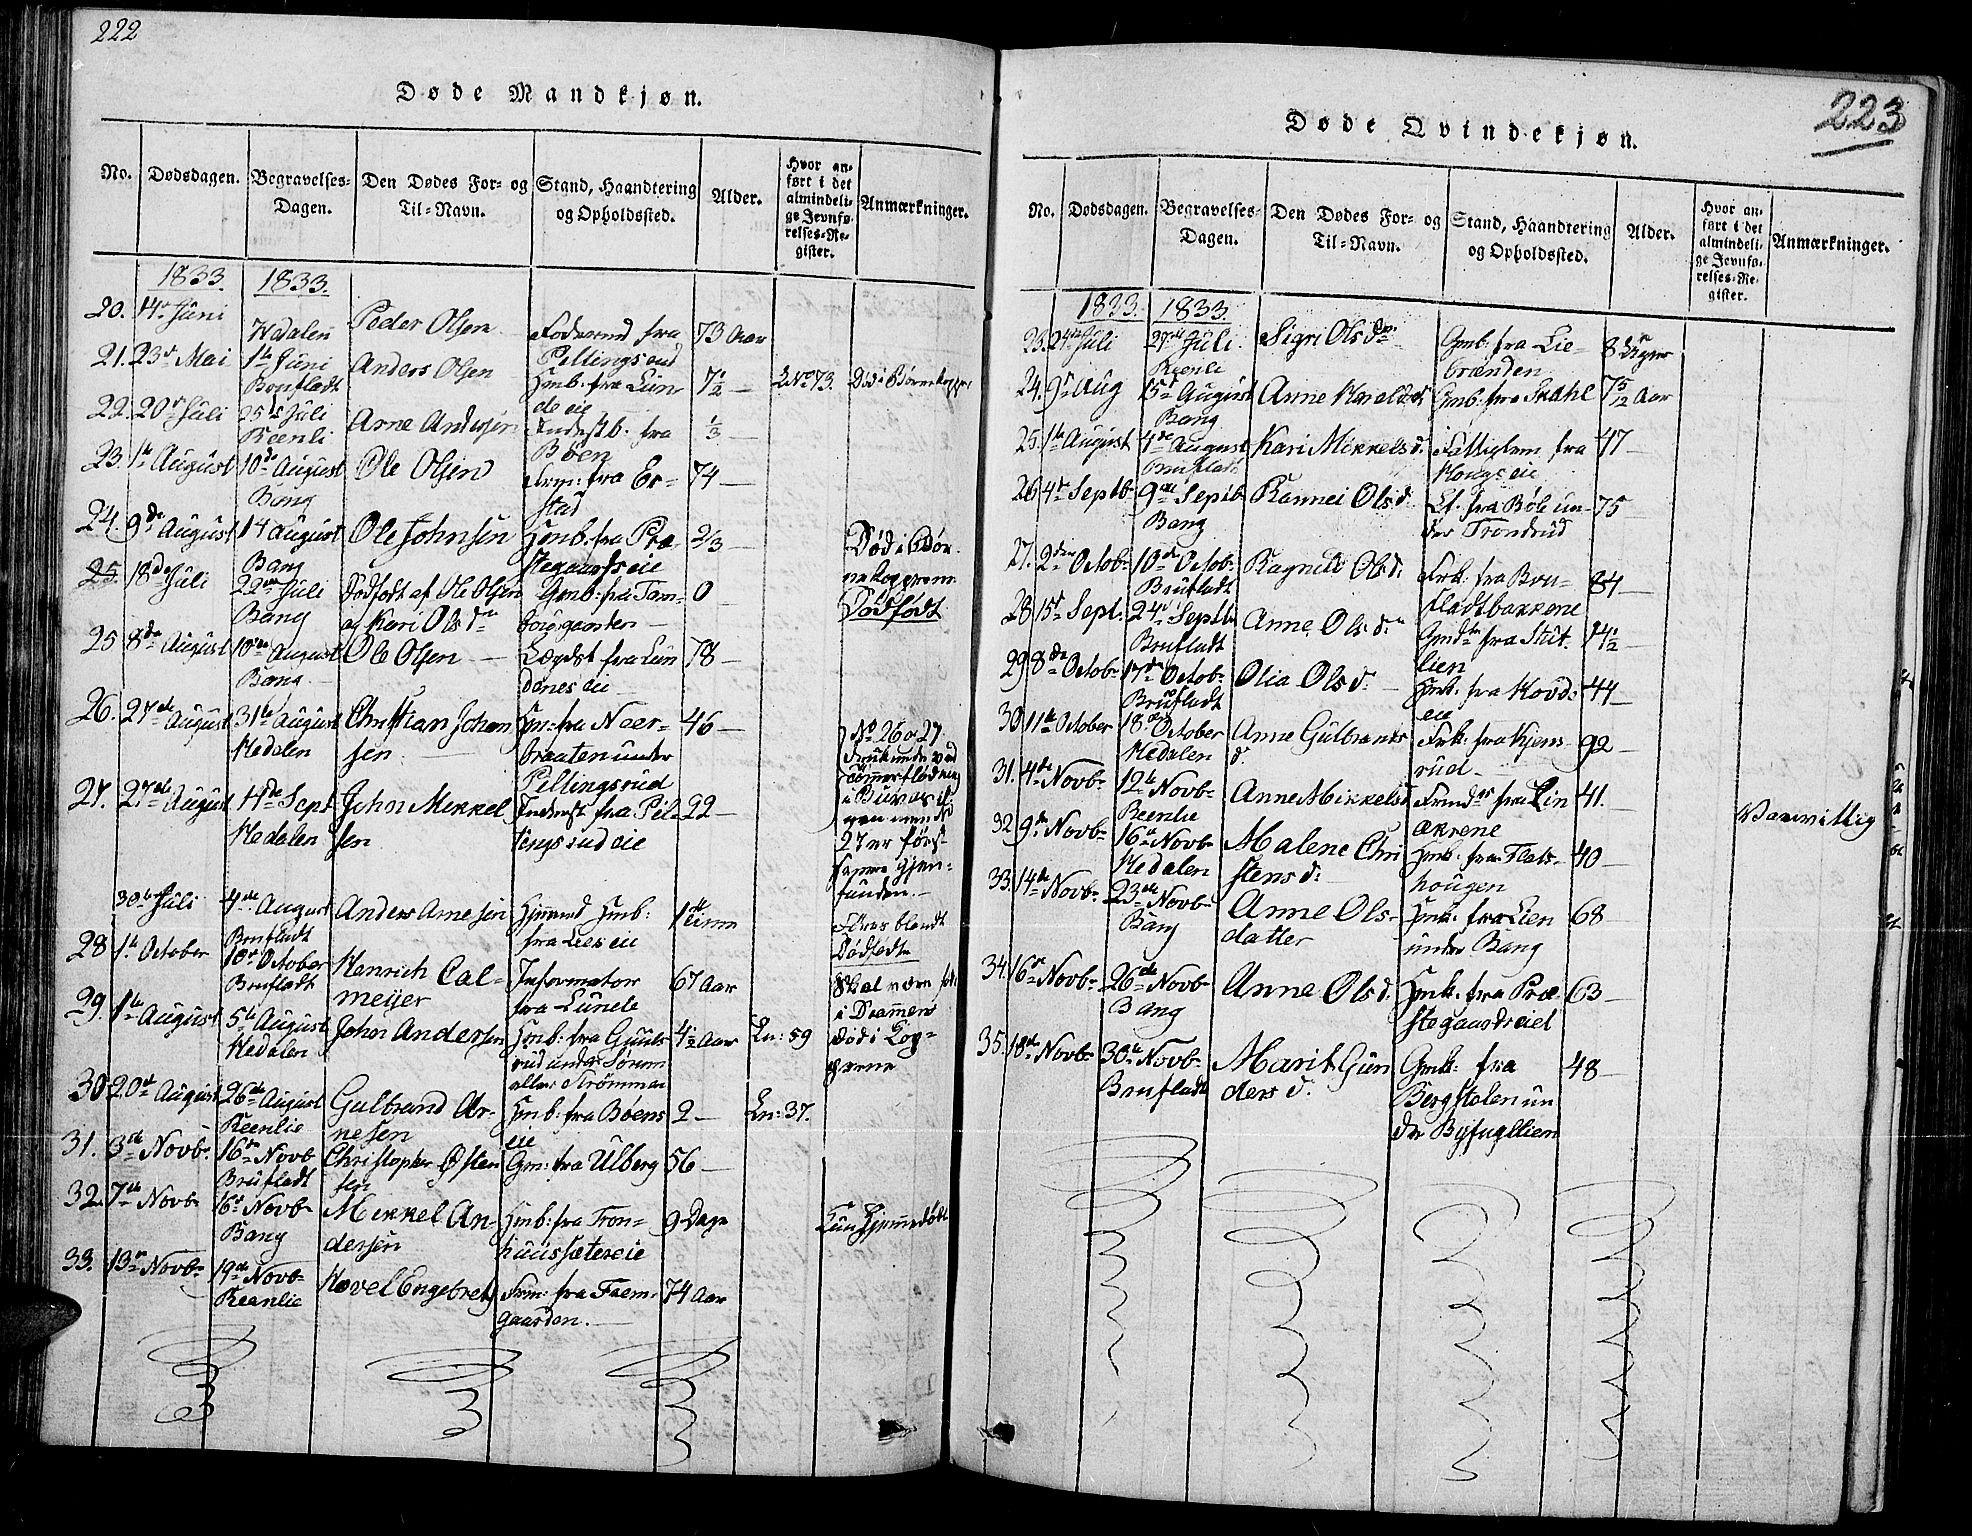 222
Døde Mandkjøn.
No. Dødsdagen. Begravelses-Dagen. Den Dødes For- og Til-Navn. Stand, Haandtering og Opholdssted. Alder. Hvor anført i det almindelige Jevnførelses-Register. Anmærkninger.
1833. 1833.
20. 14de Juni Hedalen Peder Olsen Fodermd fra Pellingsrud 73 Aar
21. 23de Mai 1te Juni Brufladt Anders Olsen Gmb: fra Lundeeie 7½ — LNo 73. Død i Børnekopper
22. 20de Juli 25de Juli Reenli Arne Andersen Inderstb. fra Bøen ⅓ —
23. 1te August 10de August Bang Ole Olsen fra Erstad 74 —
24. 9de August 14 August Bang Ole Johnsen Hmb. fra Præstegaardseie 2⅓ — Død i Børnekopperne
25. 18de Juli 22de Juli Bang Dødfødt af Ole Olsen og Kari Olsdr Gmb: fra 0 — Dødfødt
25 8de August 10de August Bang Ole Olsen — Lægdst fra Lundeneseie 78 —
26. 27de August 31te August Hedalen Christian Johansen Hm: fra Neerbraaten under Pellingsrud 46 — No 26 og 27 Drukned ved Tømmerflødning
27. 27de August 14de Sept Hedalen John Mekkelsen Inderst fra Pellingsrud eie 22 — 27 er først senere gjenfunden. —
30te Juli 4de August Brufladt Anders Arnesen Hmb: fra Lieseie 1 Time Føres blandt Dødfødte
28 1te October 10de October Brufladt Henrich Calmeijer Informator fra Lunde 67 Aar Skal være født i Drammen
29. 1te August 5te August Hedalen John Andersen Hmb: fra Guulsrud under Sørum eller Strømmen 4½ Aar Ln: 59 Død i Kopperne
30 20de August 26de August Reenlie Gulbrand Arnesen Hmb: fra Bøens eie 2 — Ln: 37.
31. 3de Novb: 16de Novb Brufladt Christopher Østensen Gm: fra Ulberg 56 —
32. 7de Novb 16de Novb Bang Mekkel Andersen Hmb: fra Tronhuussætereie 9 Dage Kun Hjemmedøbt
33. 13de Novb: 19de Novb Reenlie Hovel Engebrets. fra Faemgaarden. — 74 Aar
223
Døde Qvindekjøn.
No. Dødsdagen. Begravelses-Dagen. Den Dødes For- og Til-Navn. Stand, Haandtering og Opholdssted. Alder. Hvor anført i det almindelige Jevnførelses-Register. Anmærkninger.
1833. 1833.
23. 24de Juli 27de Juli Reenli Sigri Olsdr Gmb: fra Liebrænden 8 Uger
24. 9de Aug 15de August Bang Anne Haraldsd: Gmb: fra Skahl 7 5/12 Aar
25. 1te August 4de August Brufladt Kari Mikkelsd. Fattiglem fra Hougseie 47 —
26 4de Septb 9de Septb Bang Rannei Olsd. Lt. fra Bøle under Trondrud 75
27. 2den Octob: 10de Octob: Brufladt Ragnild Olsd: Frk: fra Bruflladtbakkene 84 —
28 15de Sept. 24de Septb Brufladt Anne Olsd. Gmdtr fra Stutlien 14½ —
29 8de Octob: 17de Octob: Brufladt Olia Olsd. — Hmk. fra Hovdseie 44 —
30 11te October 18de October Hedalen Anne Gulbrandsd. Frk: fra Kjemsrud — 92 —
31. 4de Novb: 12te Novb: Reenlie Anne Mikkelsd fra Linækrene 41. — Vanvittig
32 9de Novb: 16de Novb: Hedalen Malene Christensd: Hmb: fra Flatshougen 40 —
33. 14de Novb: 23de Novb: Bang Anne Olsdatter Hmk. fra Lien under Bang 68 —
34. 16de Novb: 26de Novb: Bang Anne Olsd. Hmk. fra Præstegaardseiet 63 —
35. 18de Novb: 30te Novb: Brufladt Marit Gundersd. Gmk: fra Bergstølen under Byfugllien 48 —